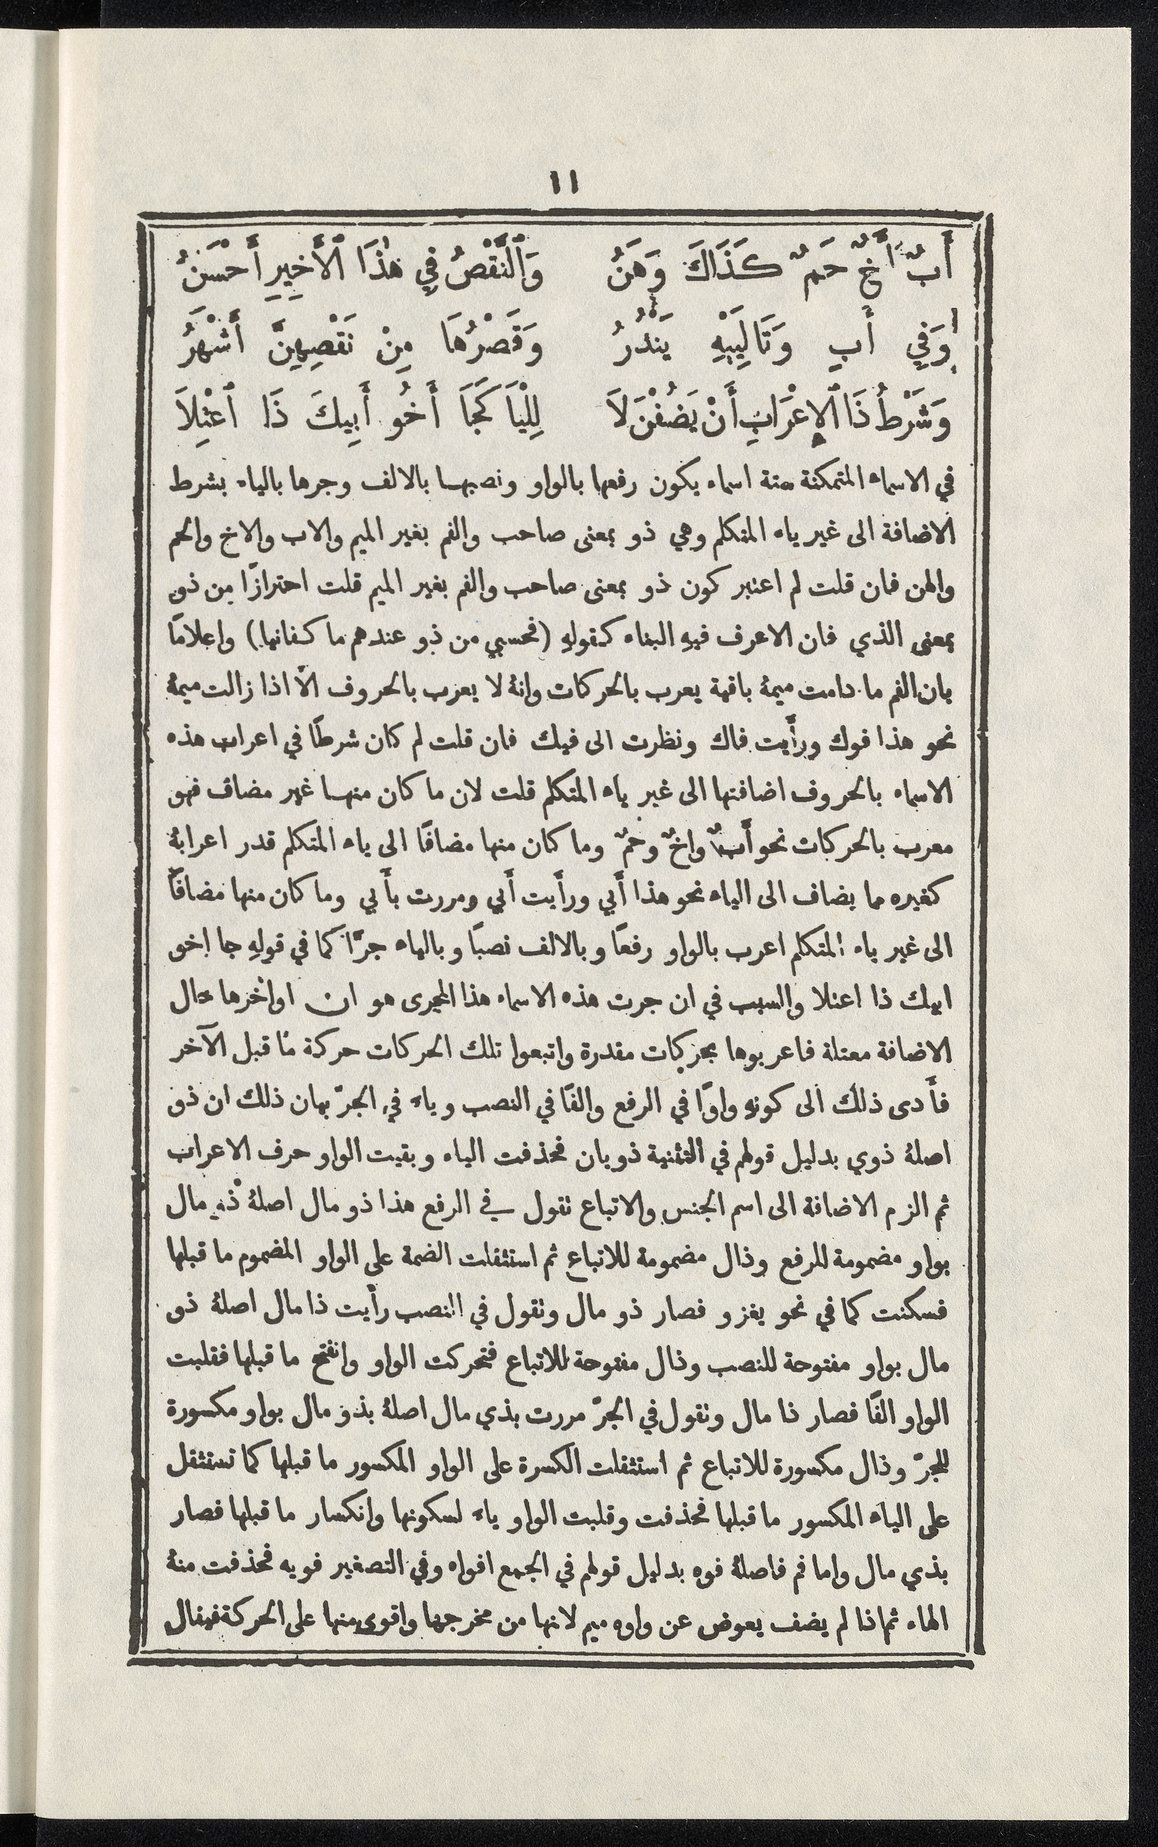 ١١
أَبٌ أَخٌ حَمٌ كَذَاكَ وَهَنُ وَٱلنَّقْصُ فِي هٰذَا ٱلْأَخِيرِ أَحْسَنُ
وَفِي أَبٍ وَتَالِيَيْهِ يَنْدُرُ وَقَصْرُهَا مِنْ نَقْصِهِنَّ أَشْهَرُ
وَشَرْطُ ذَا ٱلْإِعْرَابِ أَنْ يُضَفْنَ لَا لِلْيَا كَجَا أَخُو أَبِيكَ ذَا ٱعْتِلَا
في الاسماء المتمكنة ستة اسماء يكون رفعها بالواو ونصبها بالالف وجرها بالياء بشرط
الاضافة الى غير ياء المتكلم وهي ذو بمعنى صاحب والفم بغير الميم والاب والاخ والحم
والهن فان قلت لم اعتبر كون ذو بمعنى صاحب والفم بغير الميم قلت احترازًا من ذو
بمعنى الذي فان الاعرف فيهِ البناء كقولهِ (فحسبي من ذو عندهم ما كفانيا) واعلامًا
بان الفم ما دامت ميمهُ باقية يعرب بالحركات وانهُ لا يعرب بالحروف الّا اذا زالت ميمهُ
نحو هذا فوك ورأَيت فاك ونظرت الى فيك فان قلت لم كان شرطًا في اعراب هذه
الاسماء بالحروف اضافتها الى غير ياء المتكلم قلت لان ما كان منها غير مضاف فهو
معرب بالحركات نحو أَبٌ واخٌ وحمٌ وما كان منها مضافًا الى ياء المتكلم قدر اعرابهُ
كغيره مما يضاف الى الياء نحو هذا أَبي ورأَيت أَبي ومررت بأَبي وما كان منها مضافًا
الى غير ياء المتكلم اعرب بالواو رفعًا وبالالف نصبًا وبالياء جرًّا كما في قولهِ جا اخو
ابيك ذا اعتلا والسبب في ان جرت هذه الاسماء هذا المجرى هو ان اواخرها حال
الاضافة معتلة فاعربوها بحركات مقدرة واتبعوا تلك الحركات حركة ما قبل الآخر
فأَدى ذلك الى كونهِ واوًا في الرفع والفًا في النصب وياء في الجرّ بيان ذلك ان ذو
اصلهُ ذوي بدليل قولهم في التثنية ذويان فحذفت الياء وبقيت الواو حرف الاعراب
ثم الزم الاضافة الى اسم الجنس والاتباع نقول في الرفع هذا ذو مال اصلهُ ذو مال
بواو مضمومة للرفع وذال مضمومة للاتباع ثم استثقلت الضمة على الواو المضموم ما قبلها
فسكنت كما في نحو يغزو فصار ذو مال ونقول في النصب رأَيت ذا مال اصلهُ ذو
مال بواو مفتوحة للنصب وذال مفتوحة للاتباع فتحركت الواو وانفتح ما قبلها فقلبت
الواو الفًا فصار ذا مال ونقول في الجرّ مررت بذي مال اصلهُ بذو مال بواو مكسورة
للجرّ وذال مكسورة للاتباع ثم استثقلت الكسرة على الواو المكسور ما قبلها كما تستثقل
على الياء المكسور ما قبلها فحذفت وقلبت الواو ياء لسكونها وانكسار ما قبلها فصار
بذي مال واما فم فاصلهُ فوه بدليل قولهم في الجمع افواه وفي التصغير فويه فحذفت منهُ
الهاء ثم اذا لم يضف يعوض عن واوه ميم لانها من مخرجها واقوى منها على الحركة فيقال